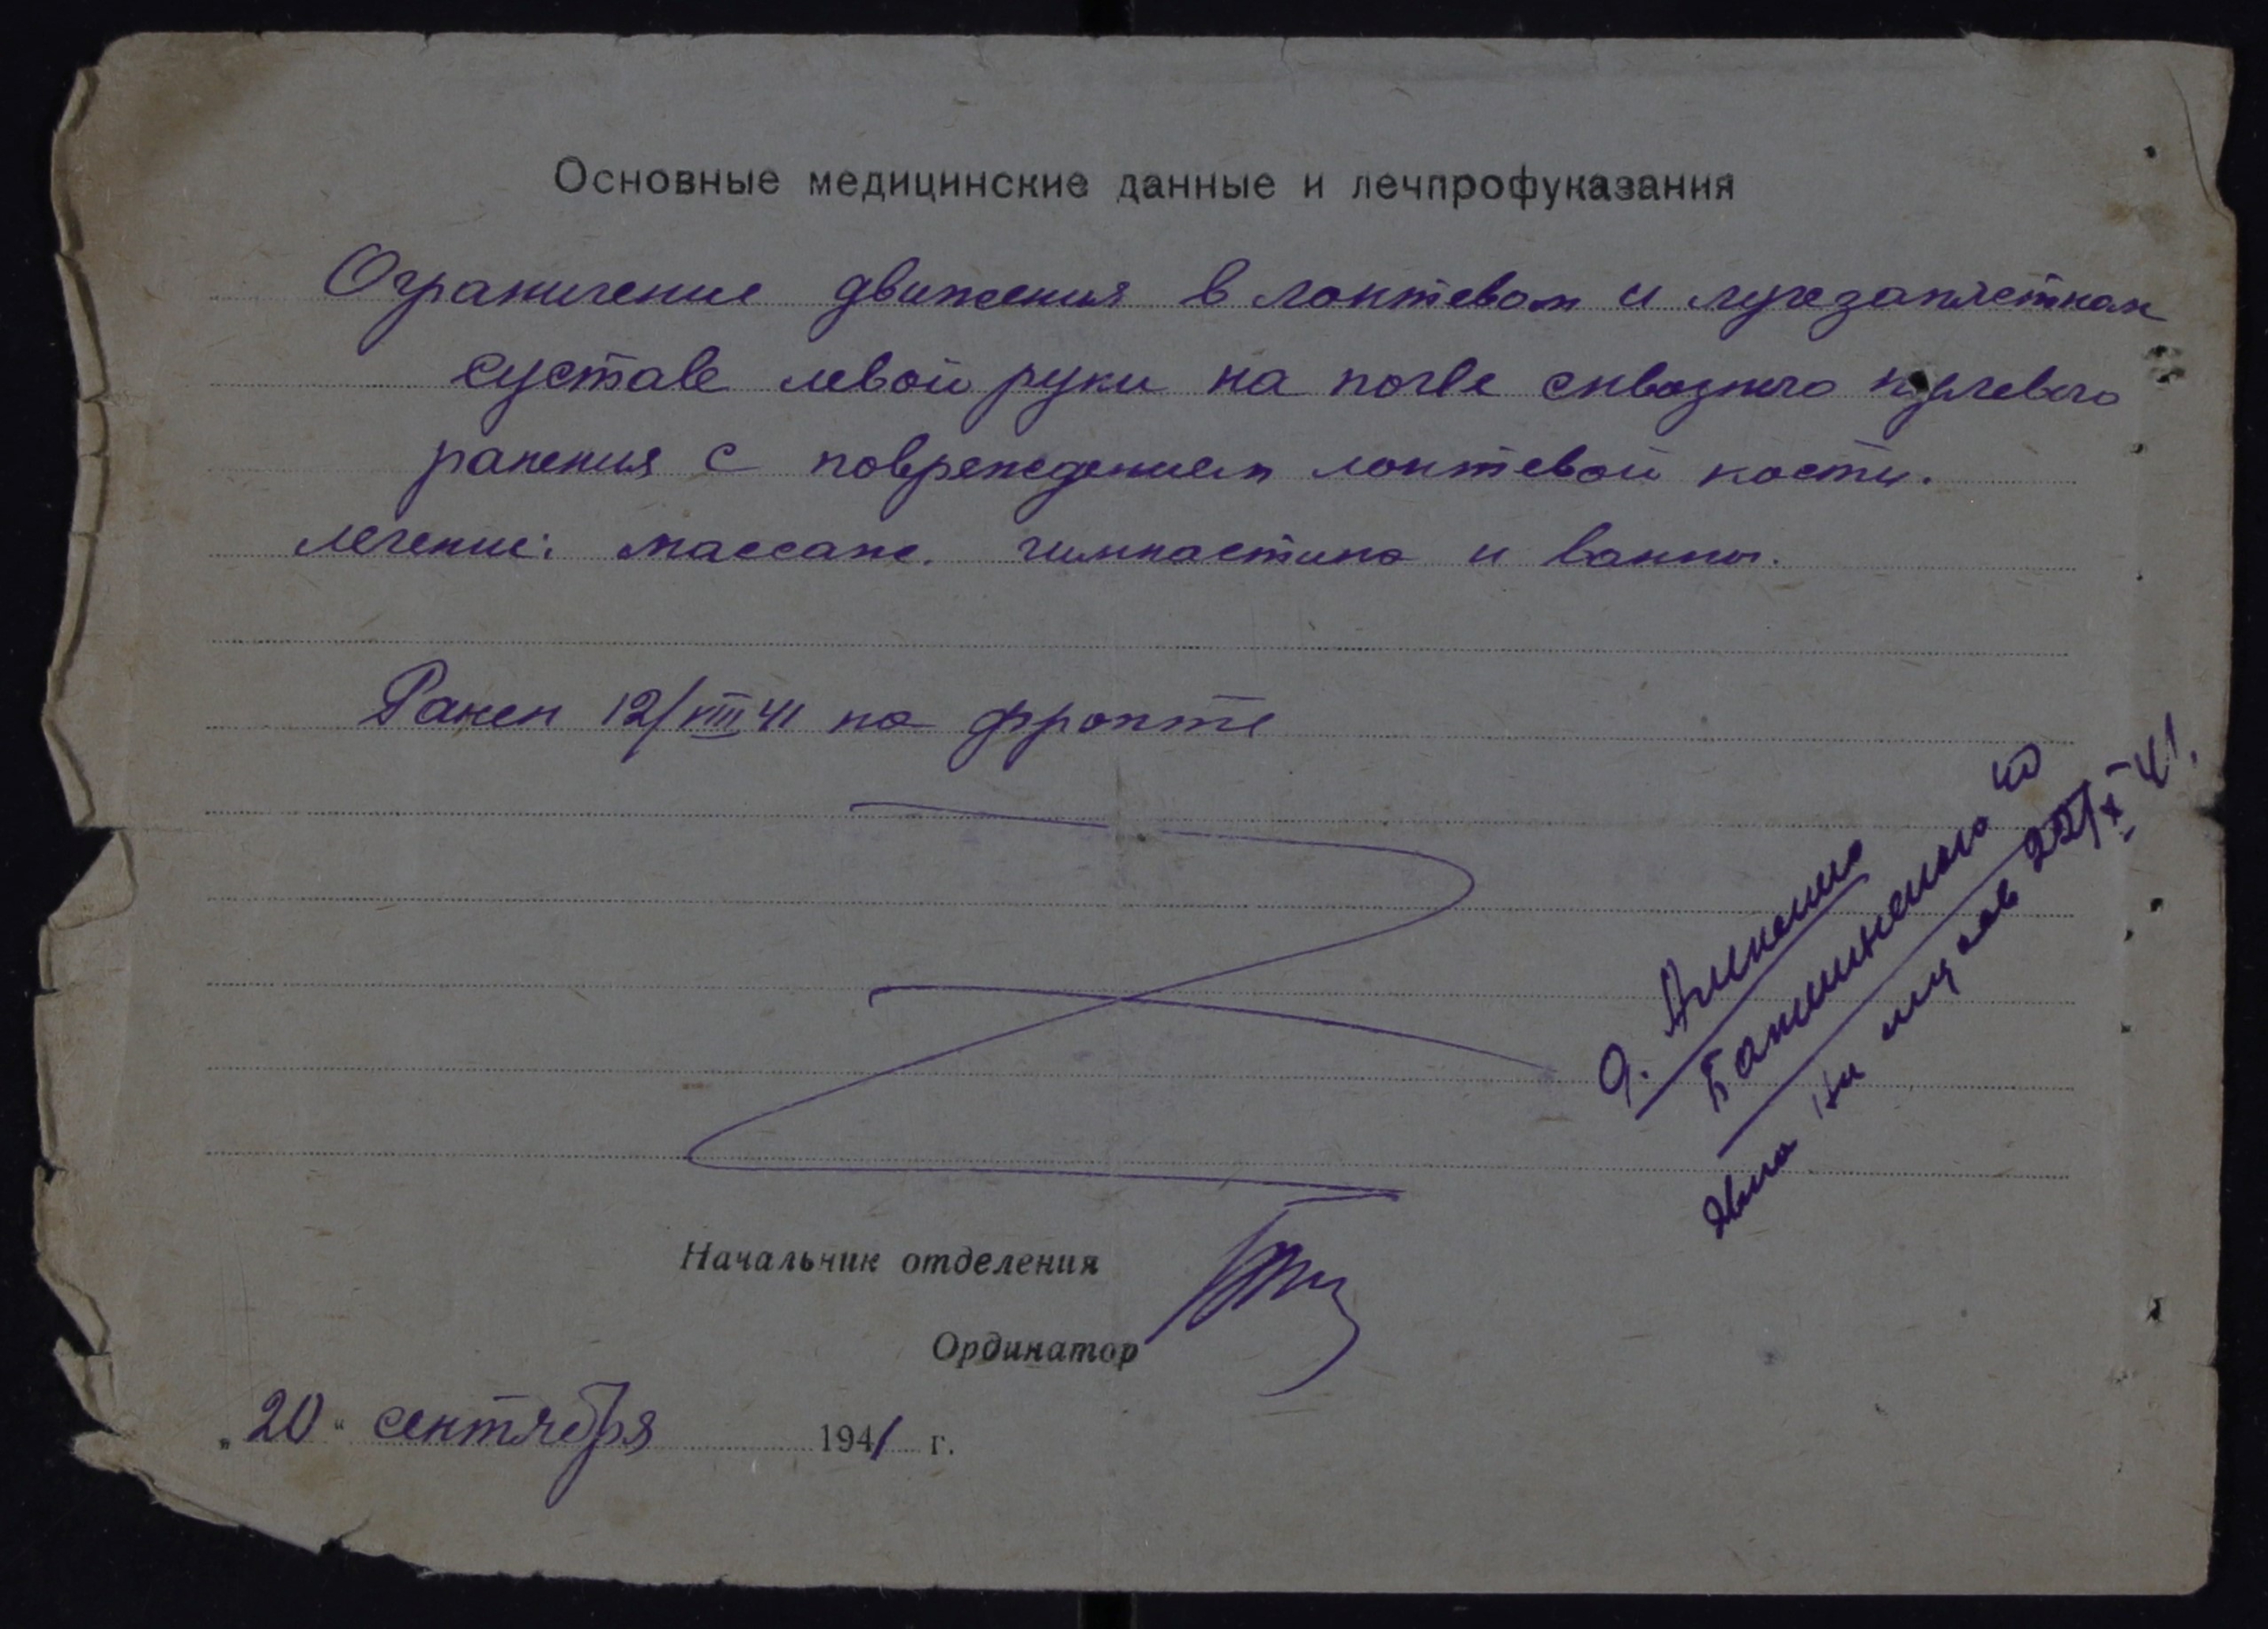 Основные медицинские данные и лечпрофуказания
Ограничение движения в локтевом и лучезапястном
суставе левой руки на почве сквозного пулевого
ранения с повреждением локтевой кости.
лечение: массаж. гимнастика и ванны.
Ранен 12/VIII 41 на фронте
Начальник отделения
Ординатор
"20" сентября 1941 г.